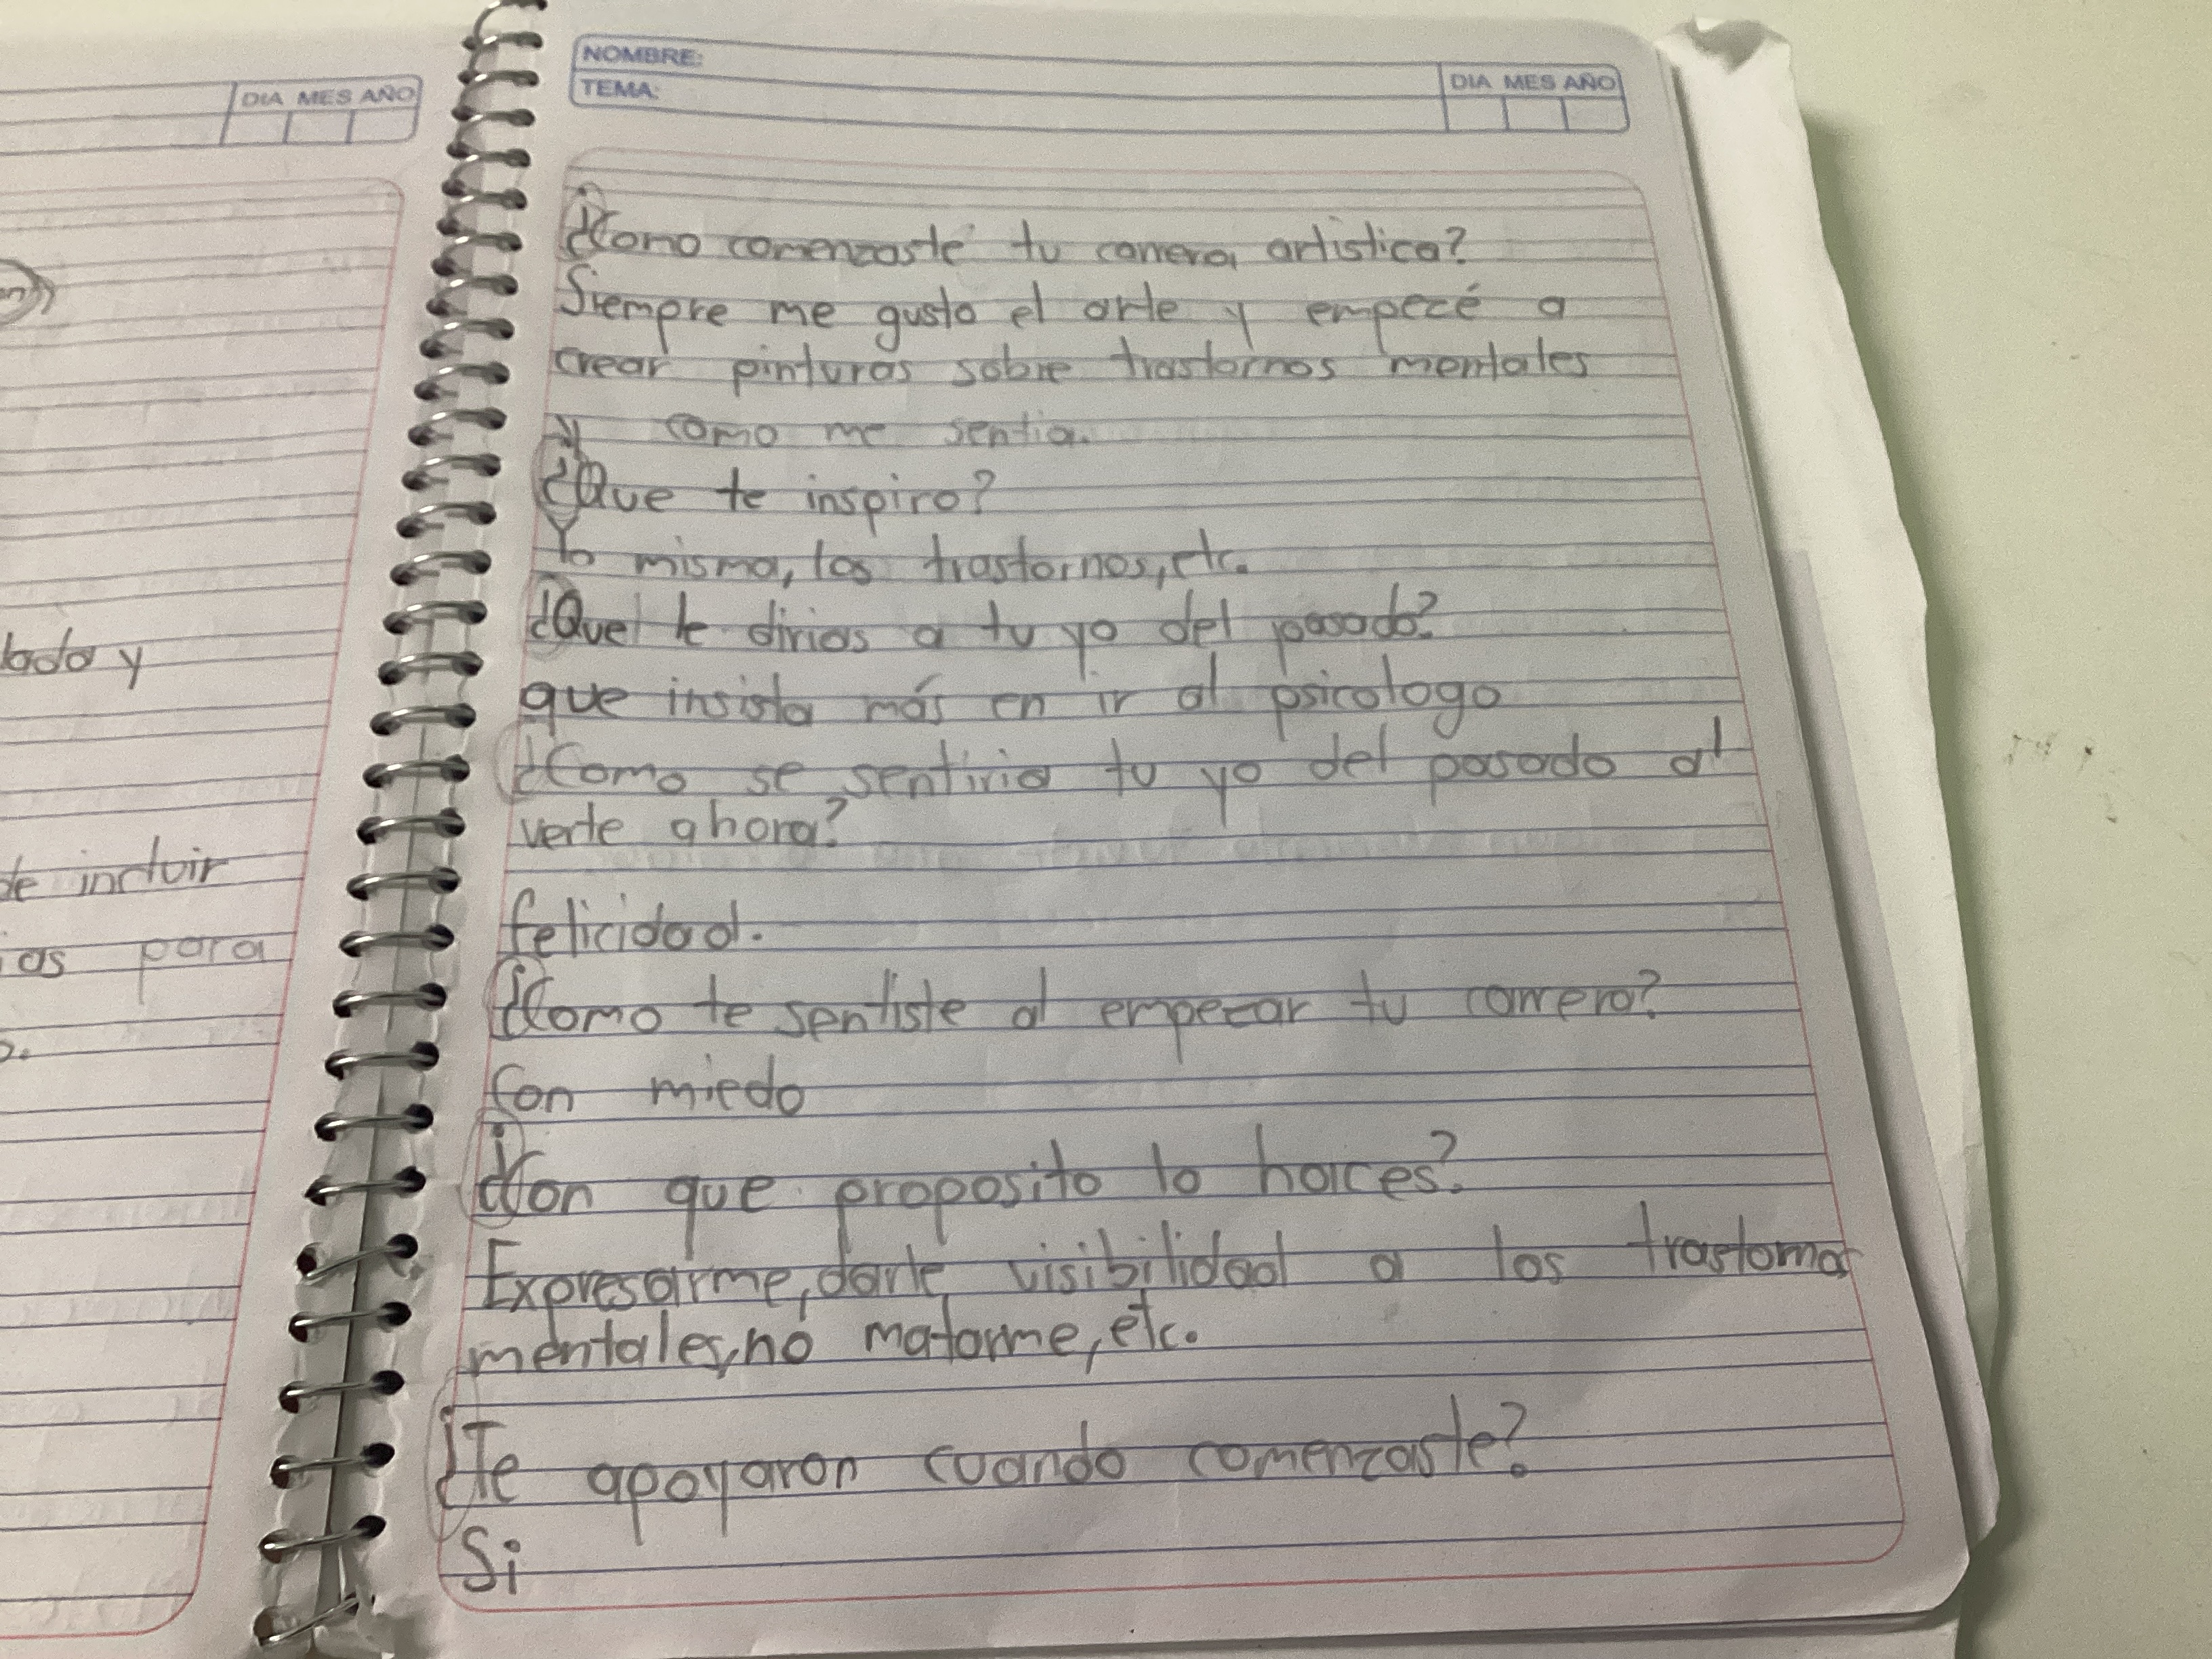 DIA MES AÑO
lado y
de incluir
as para
NOMBRE:
TEMA:
DIA MES AÑO
¿Como comenzaste tu carrera artistica?
Siempre me gusto el arte y empezé a
crear pinturas sobre trastornos mentales
y como me sentia.
¿Que te inspiro?
Yo misma, los trastornos, etc.
¿Que le dirias a tu yo del pasado?
que insista más en ir al psicologo
¿Como se sentiria tu yo del pasado al
verte ahora?
felicidad.
¿Como te sentiste al empezar tu carrera?
Con miedo
¿Con que proposito lo haces?
Expresarme, darle visibilidad a los trastornos
mentales, no matarme, etc.
¿Te apoyaron cuando comenzaste?
Si